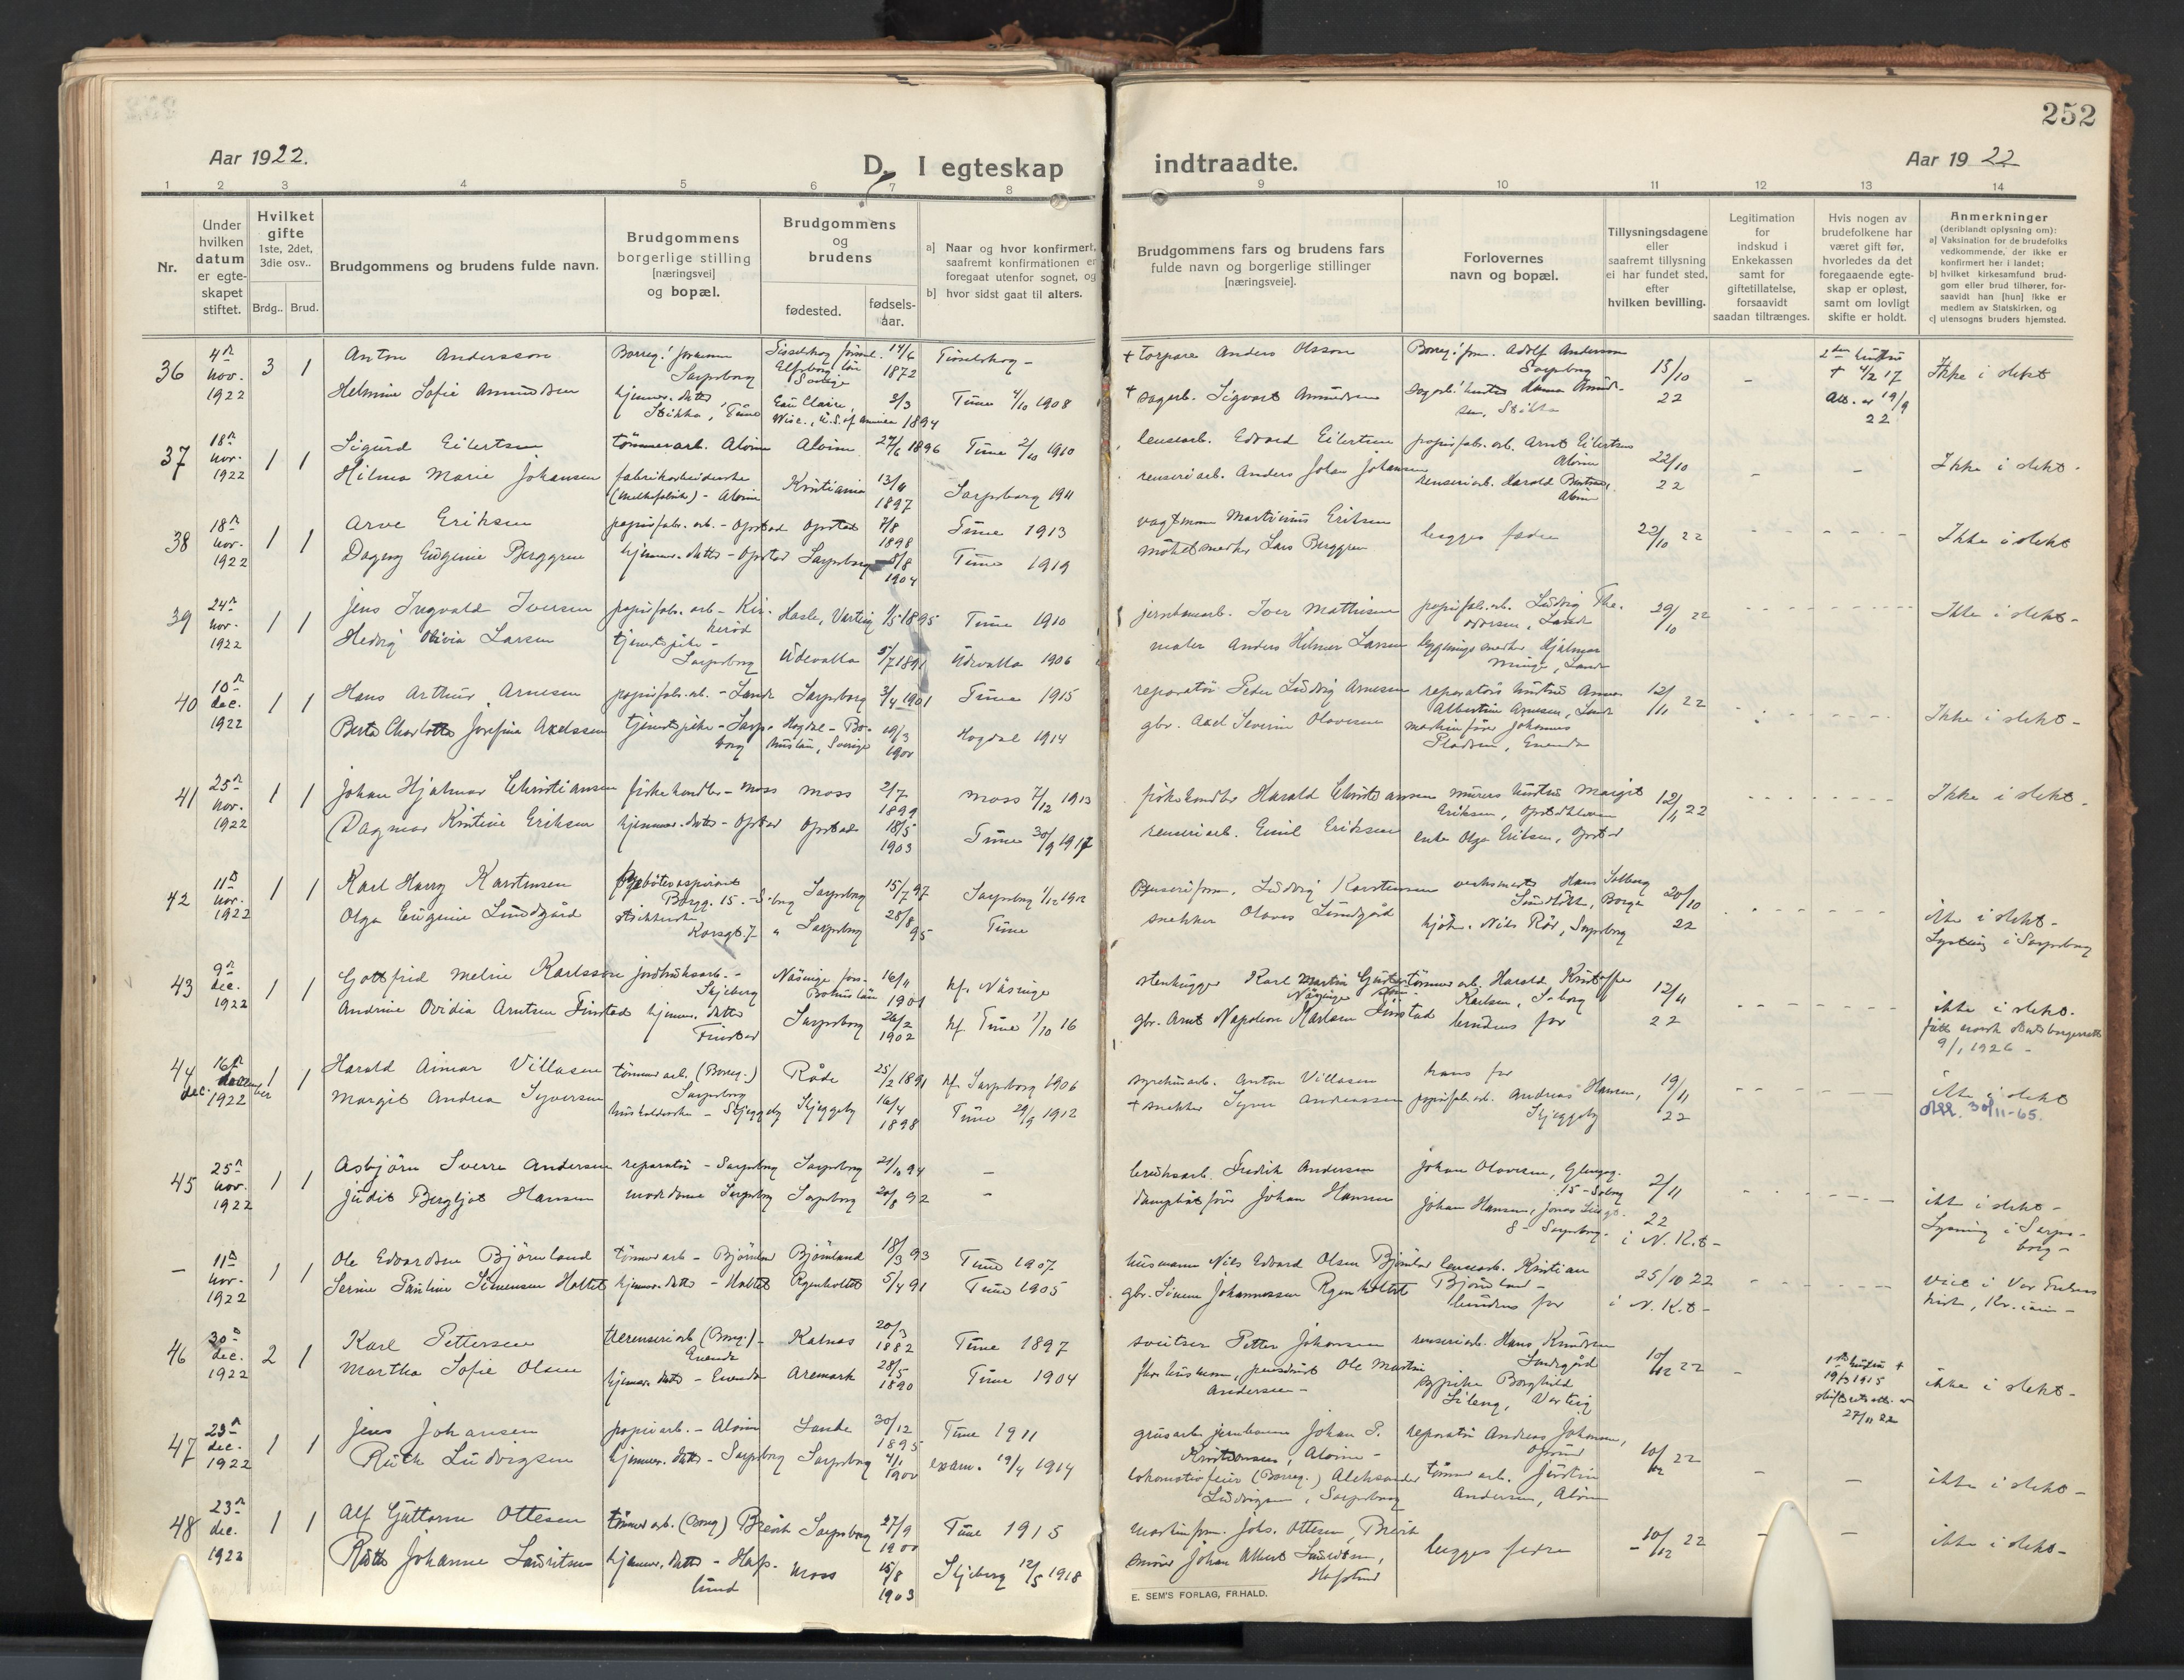 252
Aar 1922.
D. I egteskap
indtraadte.
Aar 1922
1 2 3 4 5 6 7 8 9 10 11 12 13 14
Nr.
Under
hvilken
datum
er egte-
skapet
stiftet.
Hvilket
gifte
1ste, 2det,
3die osv..
Brdg.. Brud.
Brudgommens og brudens fulde navn.
Brudgommens
borgerlige stilling
[næringsvei]
og bopæl.
Brudgommens
og
brudens
fødested.
fødsels-
aar.
a] Naar og hvor konfirmert,
saafremt konfirmationen er
foregaat utenfor sognet, og
b] hvor sidst gaat til alters.
Brudgommens fars og brudens fars
fulde navn og borgerlige stillinger
[næringsveie].
Forlovernes
navn og bopæl.
Tillysningsdagene
eller
saafremt tillysning
ei har fundet sted,
efter
hvilken bevilling.
Legitimation
for
indskud i
Enkekassen
samt for
giftetillatelse,
forsaavidt
saadan tiltrænges.
Hvis nogen av
brudefolkene har
været gift før,
hvorledes da det
foregaaende egte-
skap er opløst,
samt om lovligt
skifte er holdt.
Anmerkninger
(deriblandt oplysning om):
a] Vaksination for de brudefolks
vedkommende, der ikke er
konfirmert her i landet;
b] hvilket kirkesamfund brud-
gom eller brud tilhører, for-
saavidt han [hun] ikke er
medlem av Statskirken, og
c] utensogns bruders hjemsted.
36 4n nov. 1922 3 1
Anton Andersson
Sarpsborg
14/6 1872
+ torpare Anders Olsson
Adolf Andersson
Sarpsborg
15/10 22
Ikke i slekt
Helmine Sofie Amundsen
hjemmev. datter
Eau Claire,
2/3 1894
Tune 4/10 1908
+ sagarb. Sigvart Amundsen
37 18n nov. 1922 1 1
Sigurd Eilertsen
tømmerarb. Alvim
Alvim
24/6 1896
Tune 2/10 1910
lensearb. Edvard Eilertsen
papirfabr. arb. Arnt Eilertsen
Alvim
22/10 22
Ikke i slekt -
Hilma Marie Johansen
fabrikarbeiderske
Kristiania
1897
Sarpsborg 1911
renseriarb. Anders Johan Johansen
38 18n nov. 1922 1 1
Arve Eriksen
papirfabr. arb. - Opstad
Opstad
7/8 1898
Tune 1913
vagtmann Martinius Eriksen
begges fædre
22/10 22
Ikke i slekt
Dagny Eugenie Berggren
hjemmev. datter - Opstad
Sarpsborg
8/8 1904
Tune 1919
Lars Berggren
39 24n nov. 1922 1 1
Jens Ingvald Iversen
papirfabr. arb.
Hasle, Varteig
1/5 1895
Tune 1910
jernbanearb. Iver Mathisen
papirfab. arb. Ludvig The-
odorsen, Lande
29/10 22
Ikke i slekt -
Hedvig Olivia Larsen
tjenestepike -
Sarpsborg
Udevalla
5/7 1891
Udevalla 1906
maler Anders Hilmer Larsen
40 10n dec. 1922 1 1
Hans Arthur Arnesen
papirfab. arb. - Lande
Sarpsborg
3/4 1901
Tune 1915
reparatør Peder Ludvig Arnesen
reparatørs hustru Anna
Albertine Arnesen, Lande
12/11 22
Ikke i slekt -
Berta Charlotta Josefine Axelssen
tjenestepike - Sarps-
borg
Hogdal - Bo-
huslän, Sverige
19/3 1900
Hogdal 1914
gbr. Axel Severin Olavesen
41 25n nov. 1922 1 1
Johan Hjalmar Christiansen
fiskehandler - Moss
Moss
2/7 1899
Moss 7/12 1913
fiskehandler Harald Christiansen
murers hustru Margit
Eriksen,
12/11 22
Ikke i slekt -
Dagmar Kristine Eriksen
hjemmev. datter - Opstad
Opstad
18/5 1903
Tune 30/9 1917
renseriarb. Emil Eriksen
enke Olga Eriksen, Opstad
42 11n nov. 1922 1 1
Karl Harry Karstensen
Sarpsborg
15/7 97
Sarpsborg 1/12 1912
Ludvig Karstensen
verksmester Hans Solberg
20/10 22
ikke i slekt -
Lysning i Sarpsborg
Olga Eugenie Lundgård
Korsgt. 7
Sarpsborg
28/8 95
Tune
snekker Olaves Lundgård
kjøbm. Nils Rør, Sarpsborg
43 9n dec. 1922 1 1
Gottfrid Melvin Karlsson
jordbruksarb. -
Skjeberg
Näsinge
Bohuslän
16/11 1901
kf. Näsinge
stenhugger Karl Martin
tømmerarb. Harald Kristoffer
Karlsen, S-borg
12/11 22
ikke i slekt.
fått norsk statsborgerrett
9/1 1926 -
Andrine Ovidia Arntsen Finstad
hjemmev. datter
Finstad
Sarpsborg
26/2 1902
kf. Tune 1/10 16
gbr. Arnt Napoleon Karlsen Finstad
brudens far
44 16n dec. 1922 1 1
Harald Aimar Villasen
tømmerarb. (Borreg.)
Sarpsborg
Råde
25/2 1891
kf. Sarpsborg 1906
Anton Villasen
hans far
19/11 22
ikke i slekt
30/11-65.
Margit Andrea Syversen
husholderske - Skjeggeby
Skjeggeby
16/4 1898
Tune 29/9 1912
+ snekker Syver Andreassen
papirfab. arb. Andreas Hansen,
Skjeggeby
45 25n nov. 1922 1 1
Asbjørn Sverre Andersen
reparatør - Sarpsborg
Sarpsborg
21/10 94
-
bruksarb. Fredrik Andersen
Johan Olavesen,
2/11 22
i N. K.t -
ikke i slekt -
Lysning i Sarps-
borg -
Judit Bergljot Hansen
Sarpsborg
Sarpsborg
20/8 92
-
dampbåtfører Johan Hansen
Johan Hansen,
8 - Sarpsborg.
- 11n nov. 1922 1 1
Ole Edvardsen Bjørnland
tømmerarb - Bjørnland
Bjørnland
18/3 93
Tune 1907
husmann Nils Edvard Olsen Bjørnland
lensearb. Kristian
Bjørnland -
25/10 22
i N. K.t -
Viet i Vor Frelsers
kirke, Kr.ania -
Serine Pauline Simensen Holtet
hjemmev. datter - Holtet
Rgenholtet
5/4 91
Tune 1905
gbr. Simen Johannessen Rgenholtet
brudens far
46 30n dec. 1922 2 1
Karl Pettersen
Kalnes
20/3 1882
Tune 1897
sveitser Petter Johansen
renseriarb. Hans Knudsen
10/12 22
19/3 1915
27/11 22
ikke i slekt -
Martha Sofie Olsen
Aremark
28/5 1890
Tune 1904
Ole Martin
Andersen -
sypike Borghild
Lileng, Varteig
47 23n dec. 1922 1 1
Jens Johansen
papirarb. - Alvim
Lande
30/12 1895
Tune 1911
Johan P.
Kristiansen, Alvim -
reparatør Andreas Johansen,
10/12 22
ikke i slekt -
Ruth Ludvigsen
hjemmev. datter - Sarpsborg
Sarpsborg
4/1 1900
19/4 1914
(Borreg.) Aleksander
Ludvigsen, Sarpsborg
tømmerarb. Jørstin
Andersen, Alvim
48 23n dec. 1922 1 1
Alf Guttorm Ottesen
tømmerarb. (Borreg) Brevik
Sarpsborg
27/9 1900
Tune 1915
Johs. Ottesen, Brevik
begges fedre
10/12 22
ikke i slekt -
Ruth Johanne Lauritsen
hjemmev. datter - Hafs-
lund
Moss
15/8 1903
Skjeberg 12/5 1918
Johan Albert Lauritsen,
Hafslund
E. SEM'S FORLAG, FR.HALD.